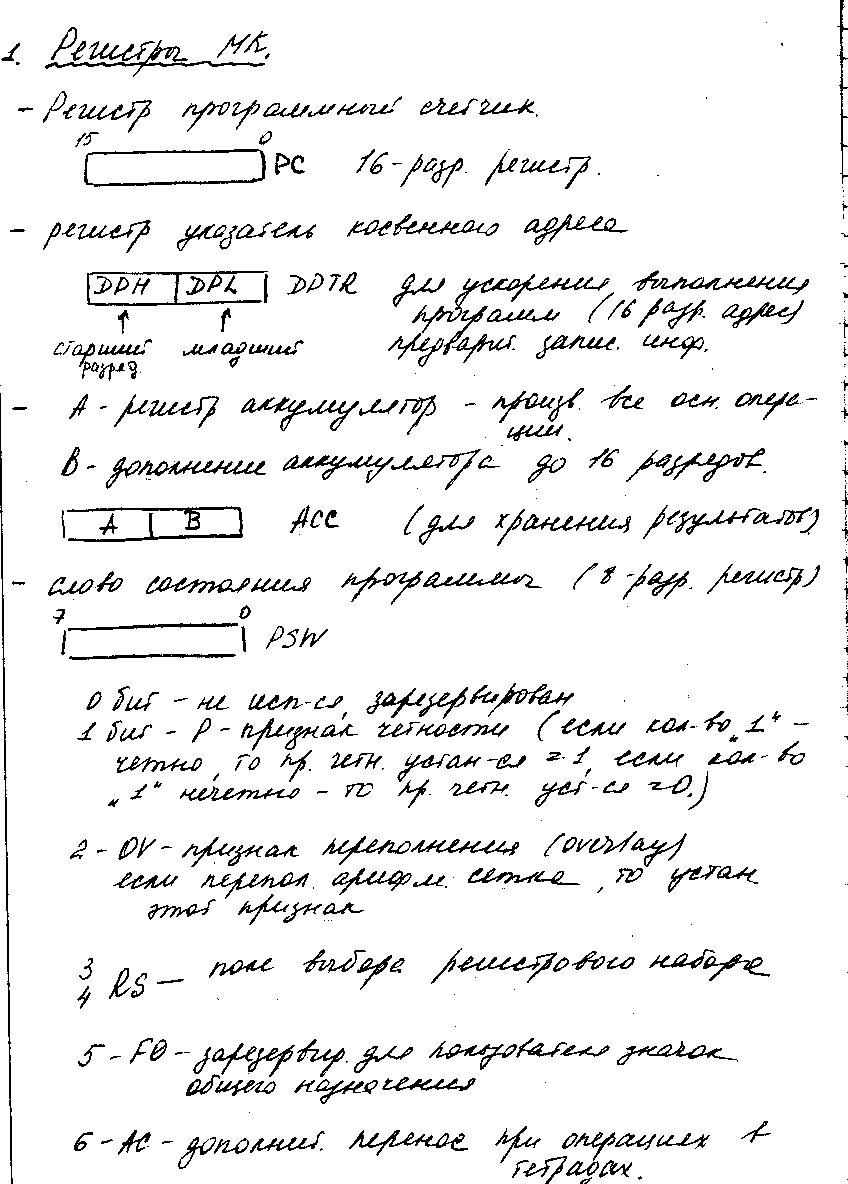 1. Регистры МК.
- Регистр программный счетчик.
15 0
PC 16-разр. регистр.
- регистр указатель косвенного адреса
DPH DPL DPTR для ускорения выполнения
программ (16 разр. адрес)
старший младший предварит. запис. инф.
разряд
- А - регистр аккумулятор - произв. все осн. опера-
ции.
В - дополнение аккумулятора до 16 разрядов.
A B ACC (для хранения результатов)
- слово состояния программы (8-разр. регистр)
7 0
PSW
0 бит - не исп-ся, зарезервирован
1 бит - P - признак четности (если кол-во „1“ -
четно, то пр. четн. устан-ся = 1, если кол-во
„1“ нечетно - то пр. четн. уст-ся = 0.)
2 - OV - признак переполнения (overlay)
если перепол. арифм. сетка, то устан
этот признак
3
4 RS — поле выбора регистрового набора
5 - F0 - зарезервир. для пользователя значок
общего назначения
6 - AC - дополнит. перенос при операциях в
тетрадах.